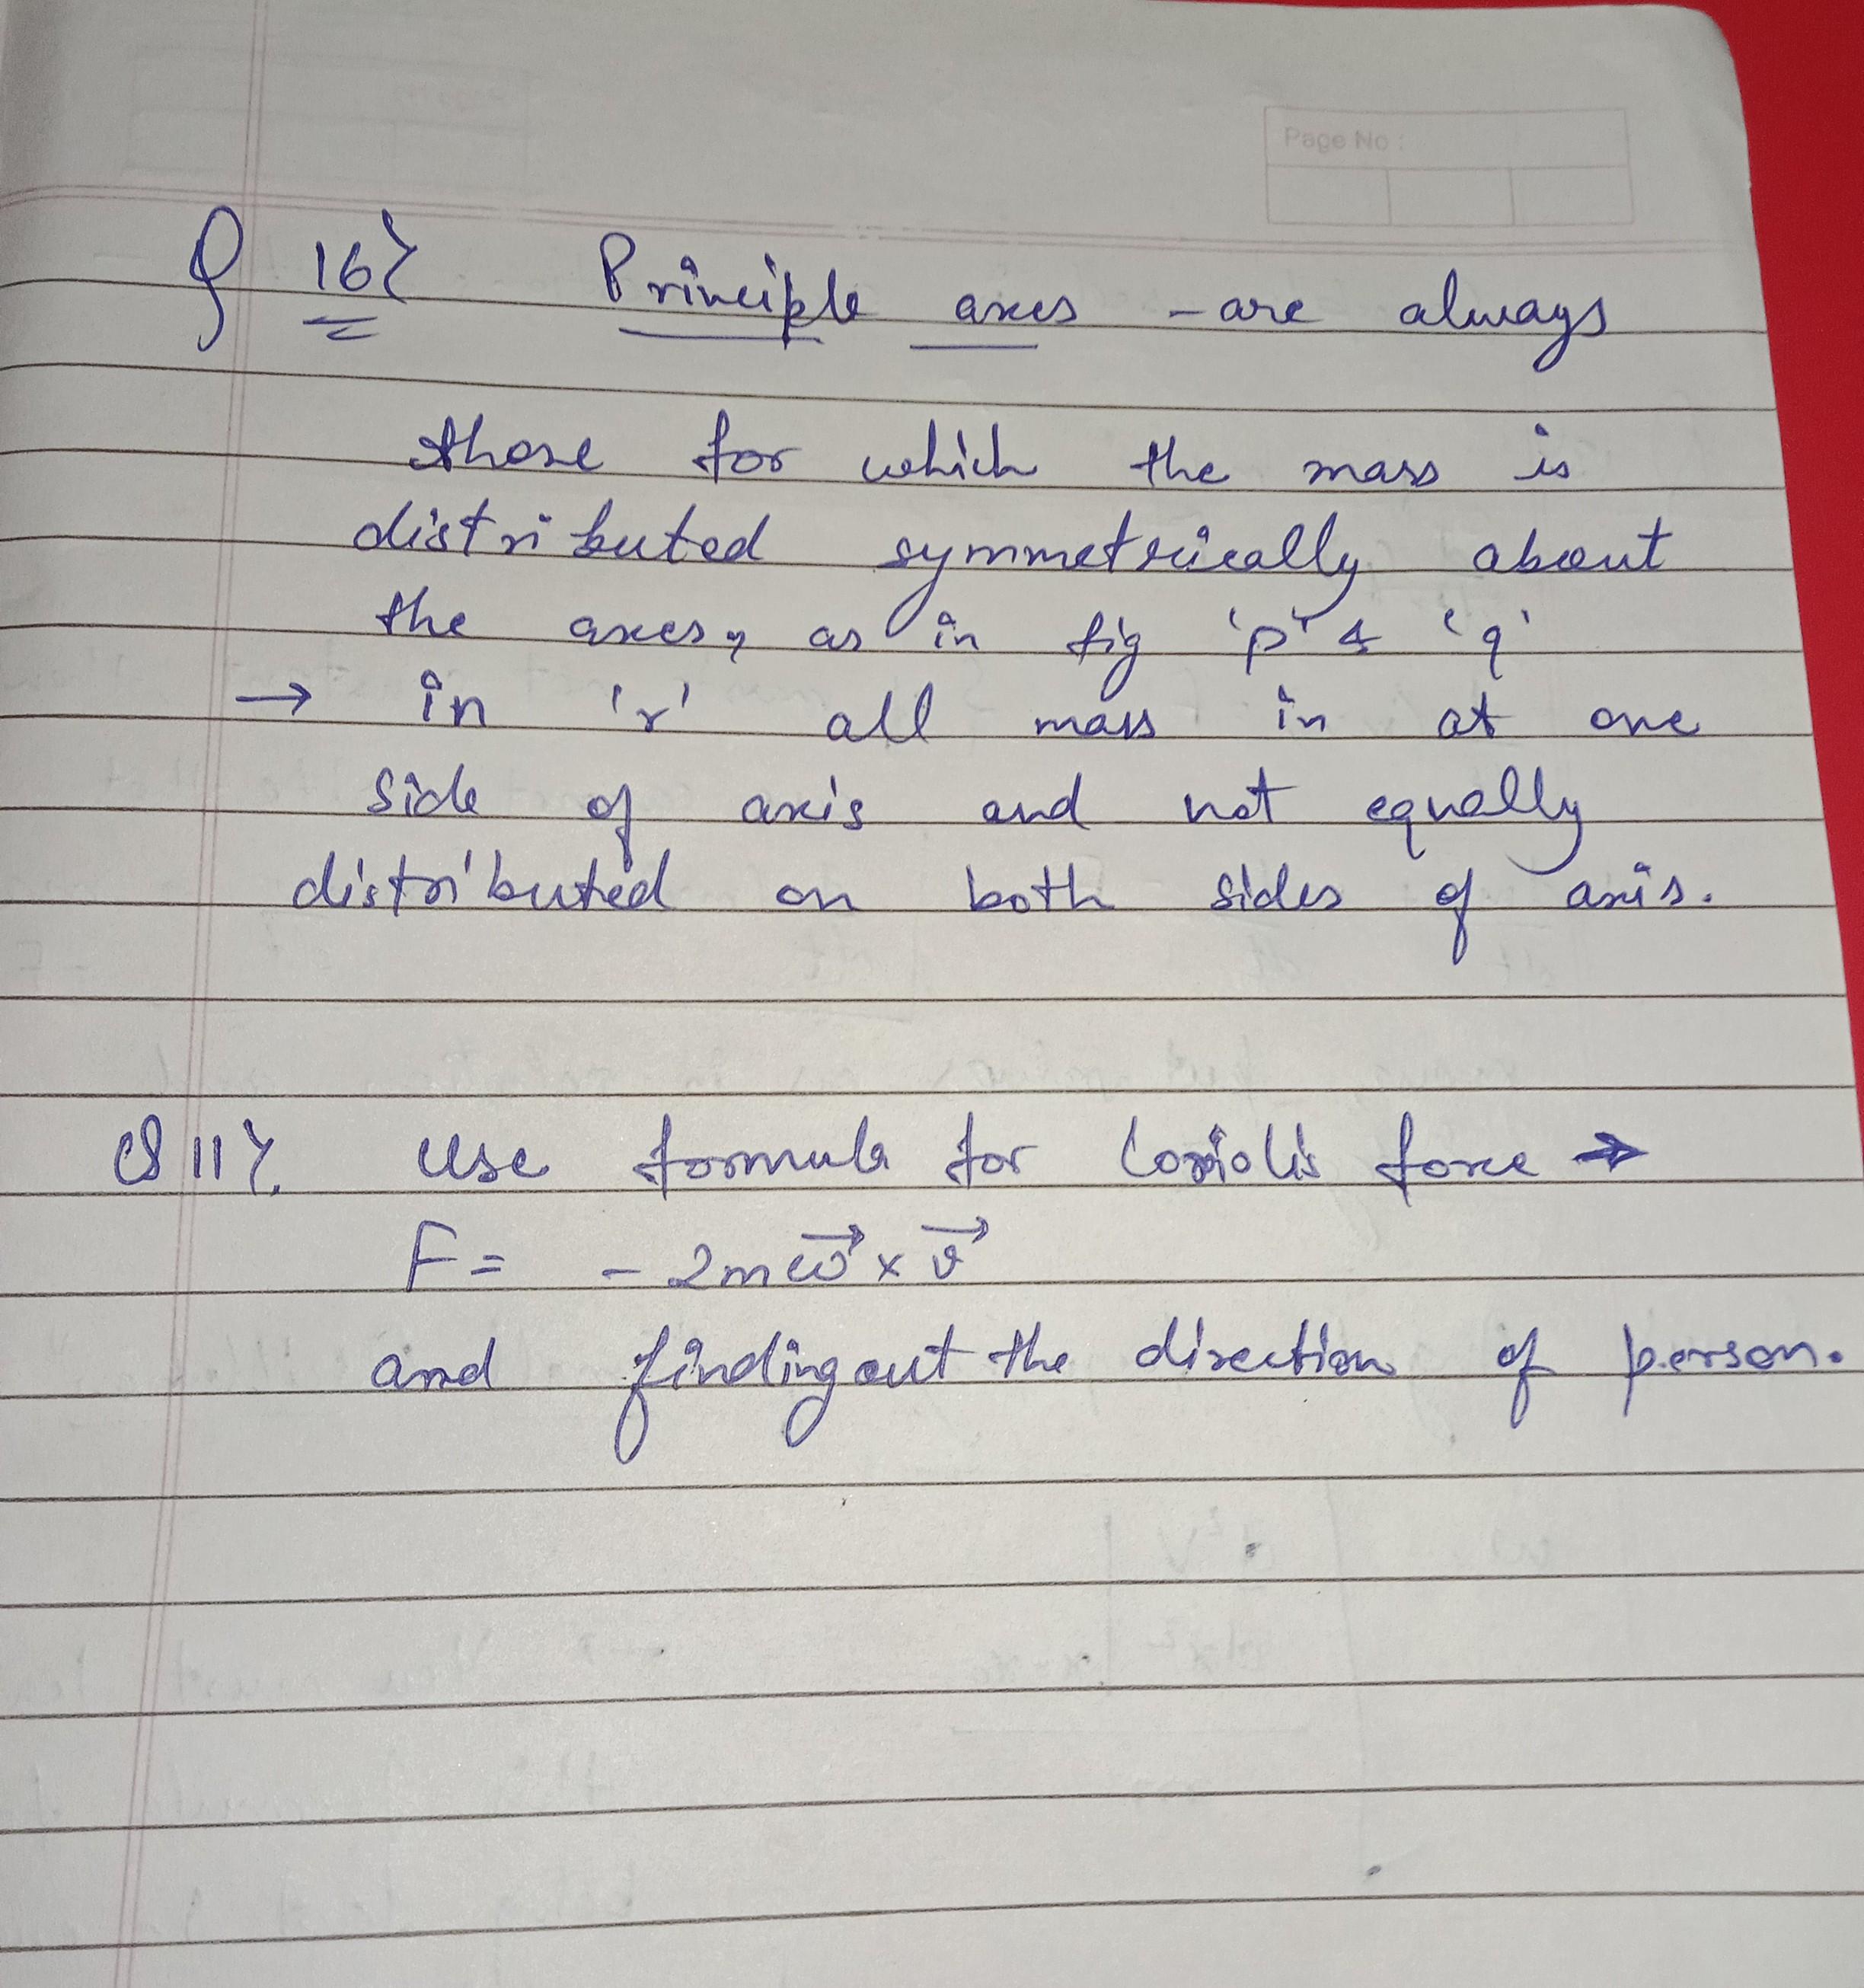 Page No :
Q 16} Principle axes - are always
those for which the mass is
distributed symmetrically about
the axes, as in fig 'p' & 'q'
→ in 'r' all mass in at one
side of axis and not equally
distributed on both sides of axis.
Q 11}. Use formula for Coriolis force →
F = - 2m ω⃗ × v⃗
and finding out the direction of person.